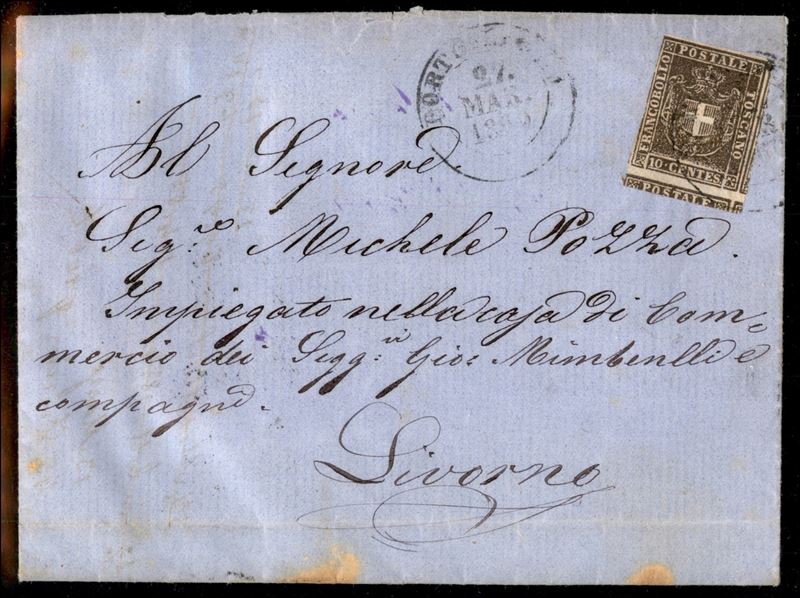 27.
MAR.
FRANCOBOLLO
POSTALE
TOSCANO
10 CENTES
POSTALE
Al Signore
Sig.re Michele Pozza.
Impiegato nella casa di Com=
mercio dei Sigg.ri Gio: Mimbenlli e
compagni.
Livorno